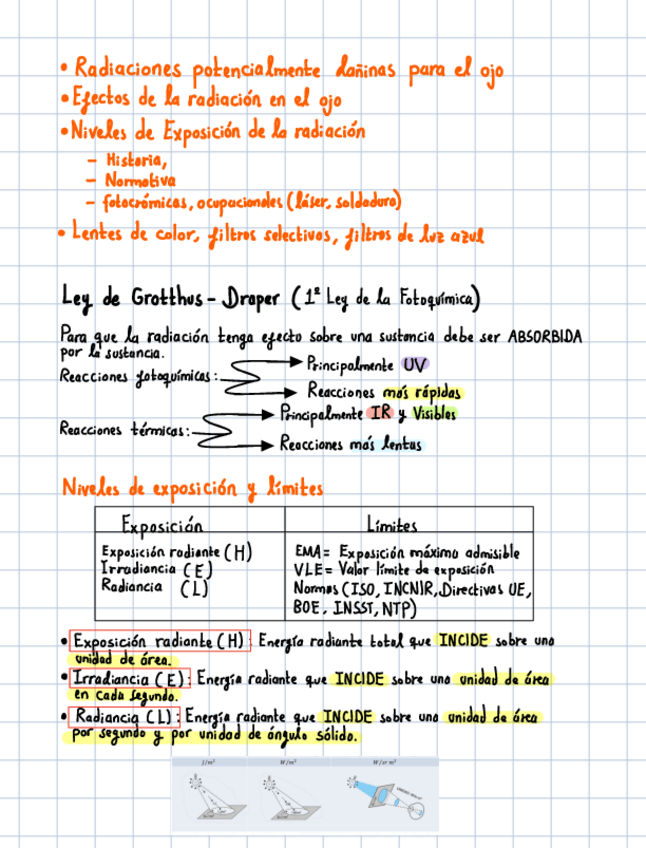 • Radiaciones potencialmente dañinas para el ojo
• Efectos de la radiación en el ojo
• Niveles de Exposición de la radiación
– Historia,
– Normativa
– fotocrómicas, ocupacionales (láser, soldadura)
• Lentes de color, filtros selectivos, filtros de luz azul
Ley de Grotthus - Draper (1ª Ley de la Fotoquímica)
Para que la radiación tenga efecto sobre una sustancia debe ser ABSORBIDA
por la sustancia.
Reacciones fotoquímicas:
Principalmente UV
Reacciones más rápidas
Reacciones térmicas:
Principalmente IR y Visibles
Reacciones más lentas
Niveles de exposición y límites
Exposición
Exposición radiante (H)
Irradiancia (E)
Radiancia (L)
Límites
EMA = Exposición máxima admisible
VLE = Valor límite de exposición
Normas (ISO, INCNIR, Directivas UE,
BOE, INSST, NTP)
• Exposición radiante (H): Energía radiante total que INCIDE sobre una
unidad de área.
• Irradiancia (E): Energía radiante que INCIDE sobre una unidad de área
en cada segundo.
• Radiancia (L): Energía radiante que INCIDE sobre una unidad de área
por segundo y por unidad de ángulo sólido.
J/m² W/m² W/sr m²